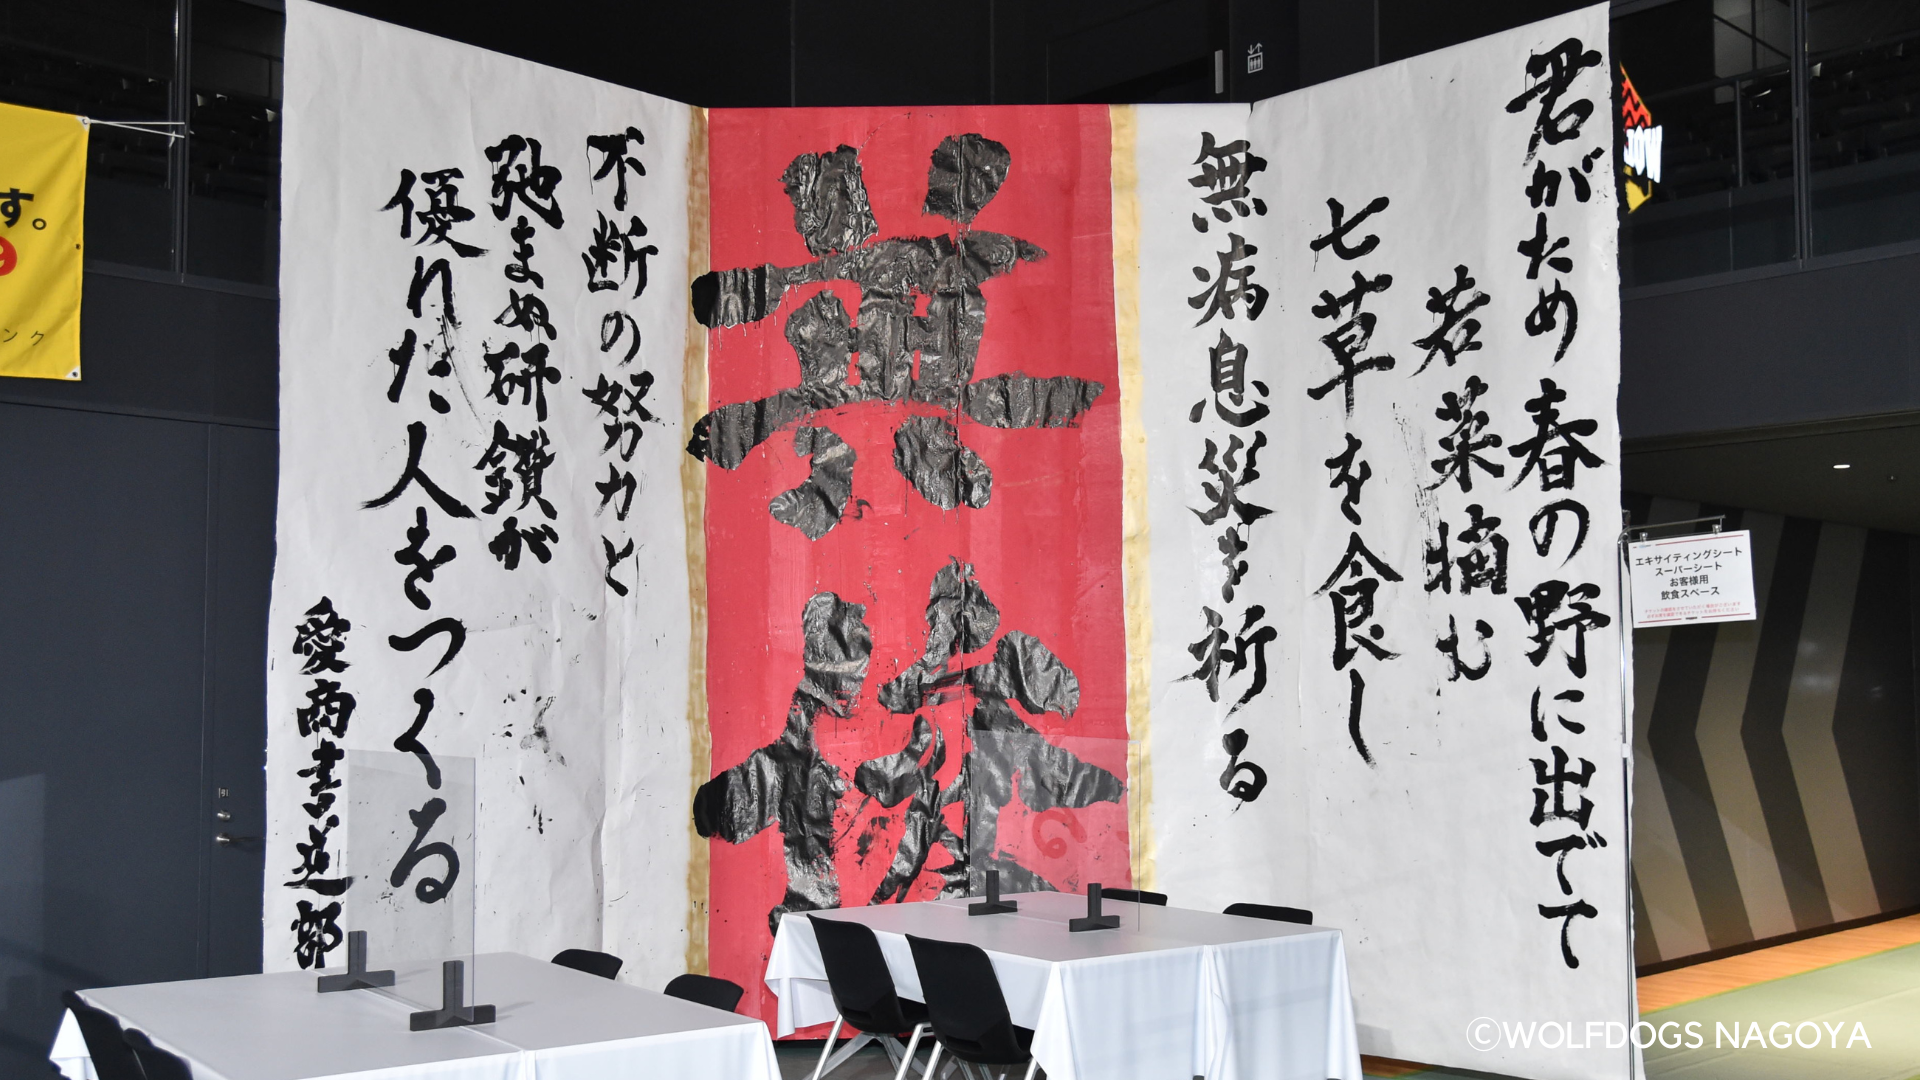 君がため春の野に出でて
若菜摘む
七草を食し
無病息災を祈る
不断の努力と
弛まぬ研鑽が
優れた人をつくる
愛商書道部
す。
9
ンク
エキサイティングシート
スーパーシート
お客様用
飲食スペース
©WOLFDOGS NAGOYA